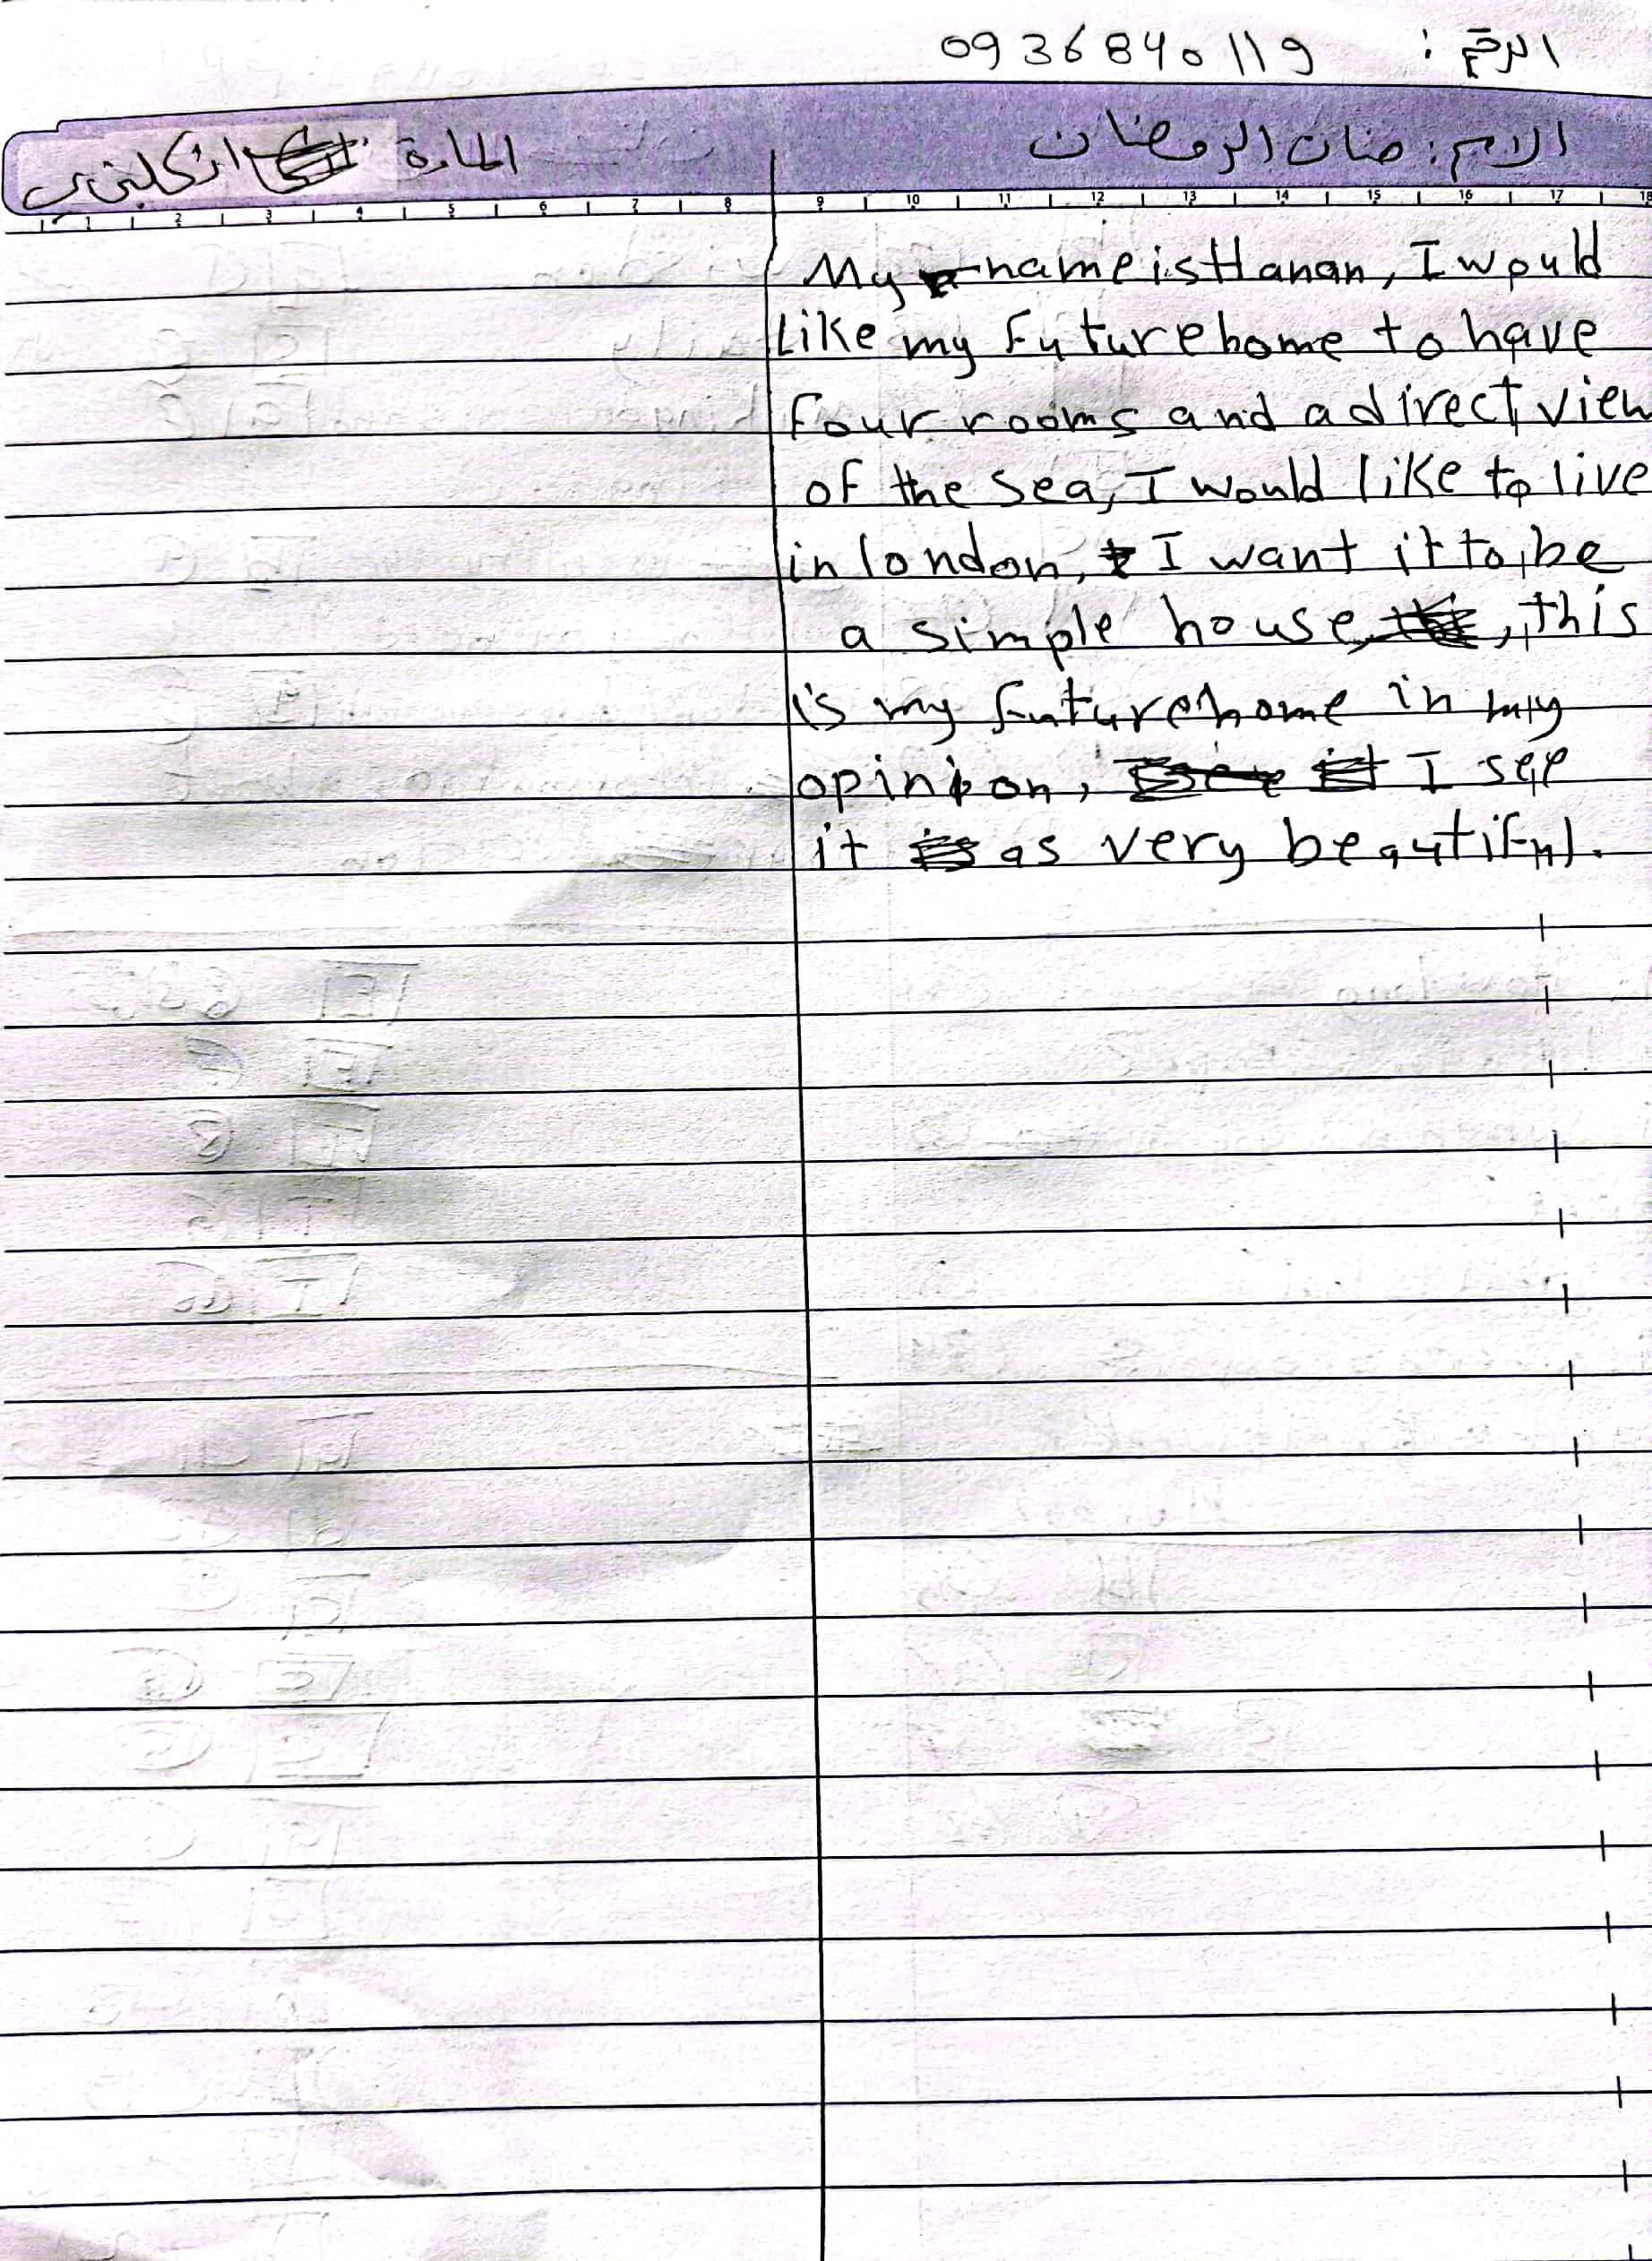 الرقم: 0936840119
الاسم: حنان الرمضان
المادة انكليزي
My name is Hanan, I would
Like my Future home to have
Four rooms and a direct view
of the sea, I would like to live
in london, I want it to be
a simple house, this
is my future home in my
opinion, I see
it as very beautiful.